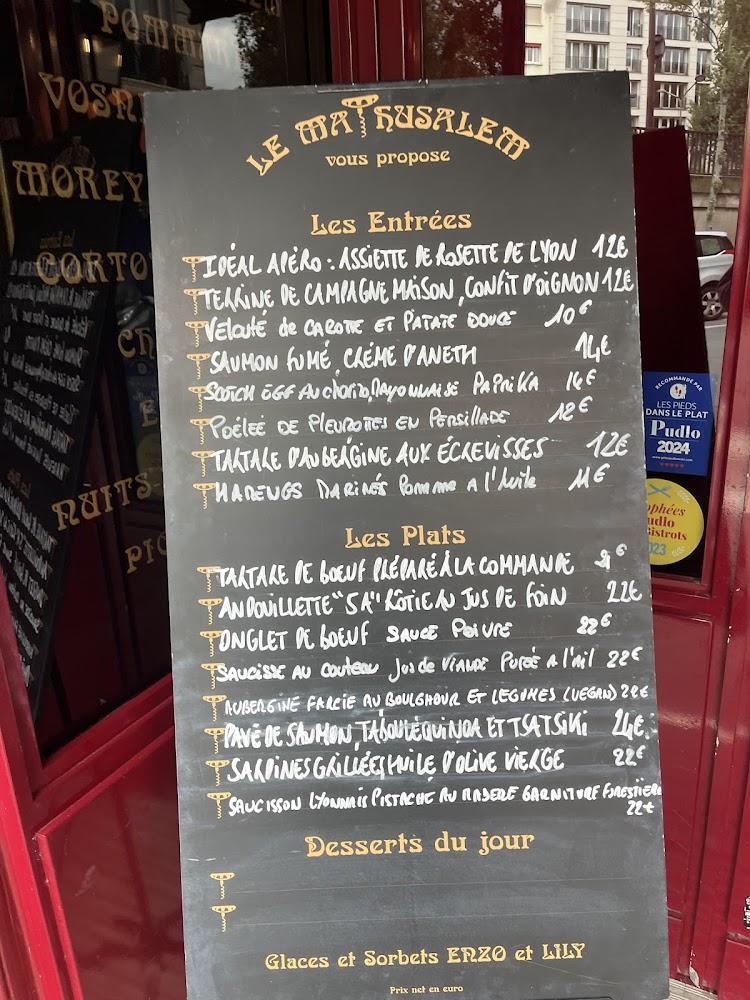 POMM
VOSN
MOREY
CORTO
CH
E
NUITS-
PIC
LE MATHUSALEM
vous propose
Les Entrées
IDÉAL APÉRO : ASSIETTE DE ROSETTE DE LYON 12€
TERRINE DE CAMPAGNE MAISON, CONFIT D'OIGNON 12€
VELOUTÉ de CAROTTE ET PATATE DOUCE 10€
SAUMON FUMÉ, CRÈME D'ANETH 14€
SCOTCH EGG AU CHORIZO, MAYONNAISE PAPRIKA 14€
POÊLÉE DE PLEUROTTES EN PERSILLADE 12€
TARTARE D'AUBERGINE AUX ÉCREVISSES 12€
HARENGS MARINÉS POMME A l'huile 11€
Les Plats
TARTARE DE BOEUF PRÉPARÉ À LA COMMANDE €
ANDOUILLETTE "5A" RÔTIE AU JUS DE FOIN 22€
ONGLET DE BOEUF SAUCE POIVRE 22€
SAUCISSE AU couteau Jus de VIANDE PURÉE A l'AIL 22€
AUBERGINE FARCIE AU BOULGHOUR ET LEGUMES (VEGAN) 22€
PAVÉ DE SAUMON, TABOULÉ QUINOA ET TSATSIKI 24€
SARDINES GRILLÉES, HUILE D'OLIVE VIERGE 22€
SAUCISSON LYONNAIS PISTACHE AU MADERE GARNITURE FORESTIERE
22€
Desserts du jour
Glaces et Sorbets ENZO et LILY
Prix net en euro
RECOMMANDÉ PAR
LES PIEDS
DANS LE PLAT
Pudlo
2024
ophées
udlo
Bistrots
023